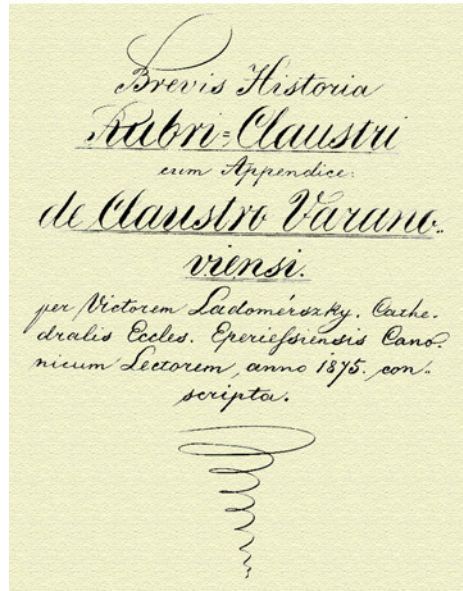 Brevis Historia
Rubri=Claustri
cum Appendice:
de Claustro Varano..
viensi.
per Victorem Ladomérszky. Cathe.
dralis Eccles. Eperieſsiensis Cano.
nicum Lectorem, anno 1875. con..
scripta.